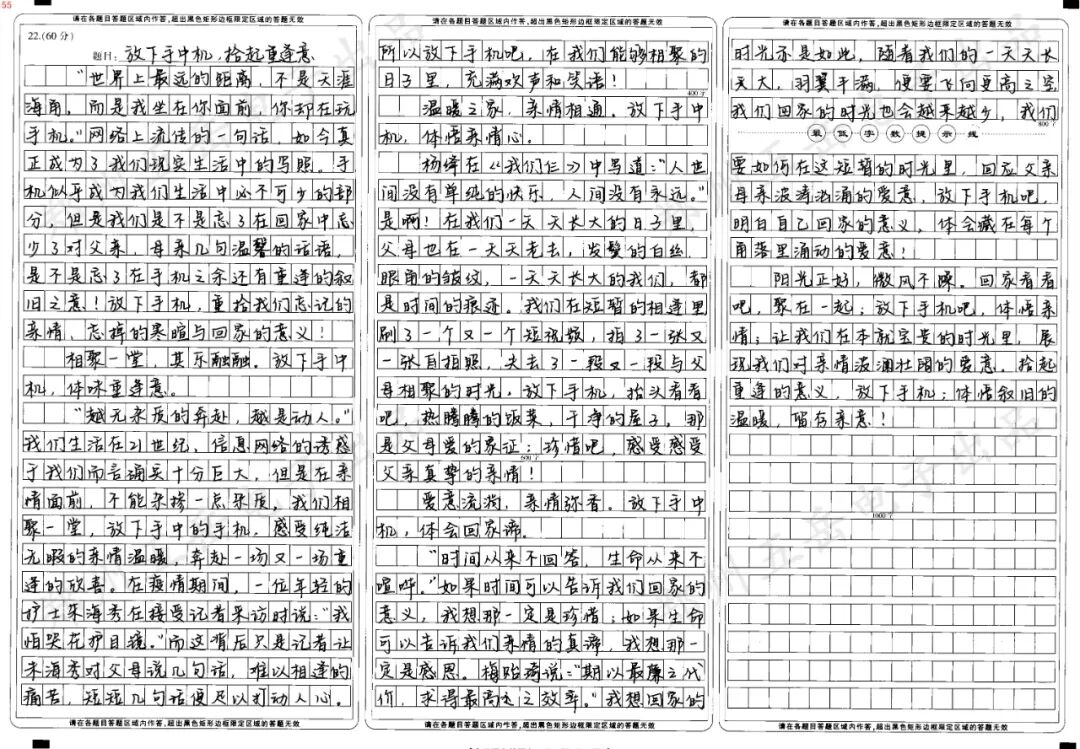 55
请在各题目答题区域内作答,超出黑色矩形边框限定区域的答题无效
22.(60分)
题目:放下手中机,拾起重逢意
“世界上最远的距离,不是天涯
海角,而是我坐在你面前,你却在玩
手机。”网络上流传的一句话,如今真
正成为了我们现实生活中的写照。手
机似乎成为我们生活中必不可少的部
分,但是我们是不是忘了在回家中忘
少了对父亲、母亲几句温馨的话语,
是不是忘了在手机之余还有重逢的叙
旧之意!放下手机,重拾我们忘记的
亲情、忘掉的寒暄与回家的意义!
相聚一堂,其乐融融。放下手中
机,体味重逢意。
“越无杂质的奔赴,越是动人。”
我们生活在21世纪,信息网络的诱惑
于我们而言确实十分巨大,但是在亲
情面前,不能杂掺一点杂质。我们相
聚一堂,放下手中的手机,感受纯洁
无暇的亲情温暖,奔赴一场又一场重
逢的欣喜。在疫情期间,一位年轻的
护士朱海秀在接受记者采访时说:“我
怕哭花护目镜。”而这背后只是记者让
朱海秀对父母说几句话,难以相逢的
痛苦,短短几句话便足以打动人心。
请在各题目答题区域内作答,超出黑色矩形边框限定区域的答题无效
请在各题目答题区域内作答,超出黑色矩形边框限定区域的答题无效
所以放下手机吧,在我们能够相聚的
日子里,充满欢声和笑语!
400字
温暖之家,亲情相通。放下手中
机,体悟亲情心。
杨绛在《我们仨》中写道:“人世
间没有单纯的快乐,人间没有永远。”
是啊!在我们一天天长大的日子里,
父母也在一天天老去,发鬓的白丝,
眼角的皱纹,一天天长大的我们,都
是时间的痕迹。我们在短暂的相逢里
刷了一个又一个短视频,拍了一张又
一张自拍照,失去了一段又一段与父
母相聚的时光,放下手机,抬头看看
吧,热腾腾的饭菜,干净的屋子,那
是父母爱的象征;珍惜吧,感受感受
600字
父亲真挚的亲情!
爱意流淌,亲情弥香。放下手中
机,体会回家谛。
“时间从来不回答,生命从来不
喧哗。”如果时间可以告诉我们回家的
意义,我想那一定是珍惜;如果生命
可以告诉我们亲情的真谛,我想那一
定是感恩。梅贻琦说:“期以最廉之代
价,求得最高之效率。”我想回家的
请在各题目答题区域内作答,超出黑色矩形边框限定区域的答题无效
请在各题目答题区域内作答,超出黑色矩形边框限定区域的答题无效
时光亦是如此,随着我们的一天天长
天大,羽翼丰满,便要飞向更高之空
我们回家的时光也会越来越少,我们
800字
最低字数提示线
要如何在这短暂的时光里,回应父亲
母亲波涛汹涌的爱意,放下手机吧,
明白自己回家的意义,体会藏在每个
角落里涌动的爱意!
阳光正好,微风不噪。回家看看
吧,聚在一起;放下手机吧,体悟亲
情;让我们在本就宝贵的时光里,展
现我们对亲情波澜壮阔的爱意。拾起
重逢的意义,放下手机;体悟叙旧的
温暖,留存亲意!
1000字
请在各题目答题区域内作答,超出黑色矩形边框限定区域的答题无效